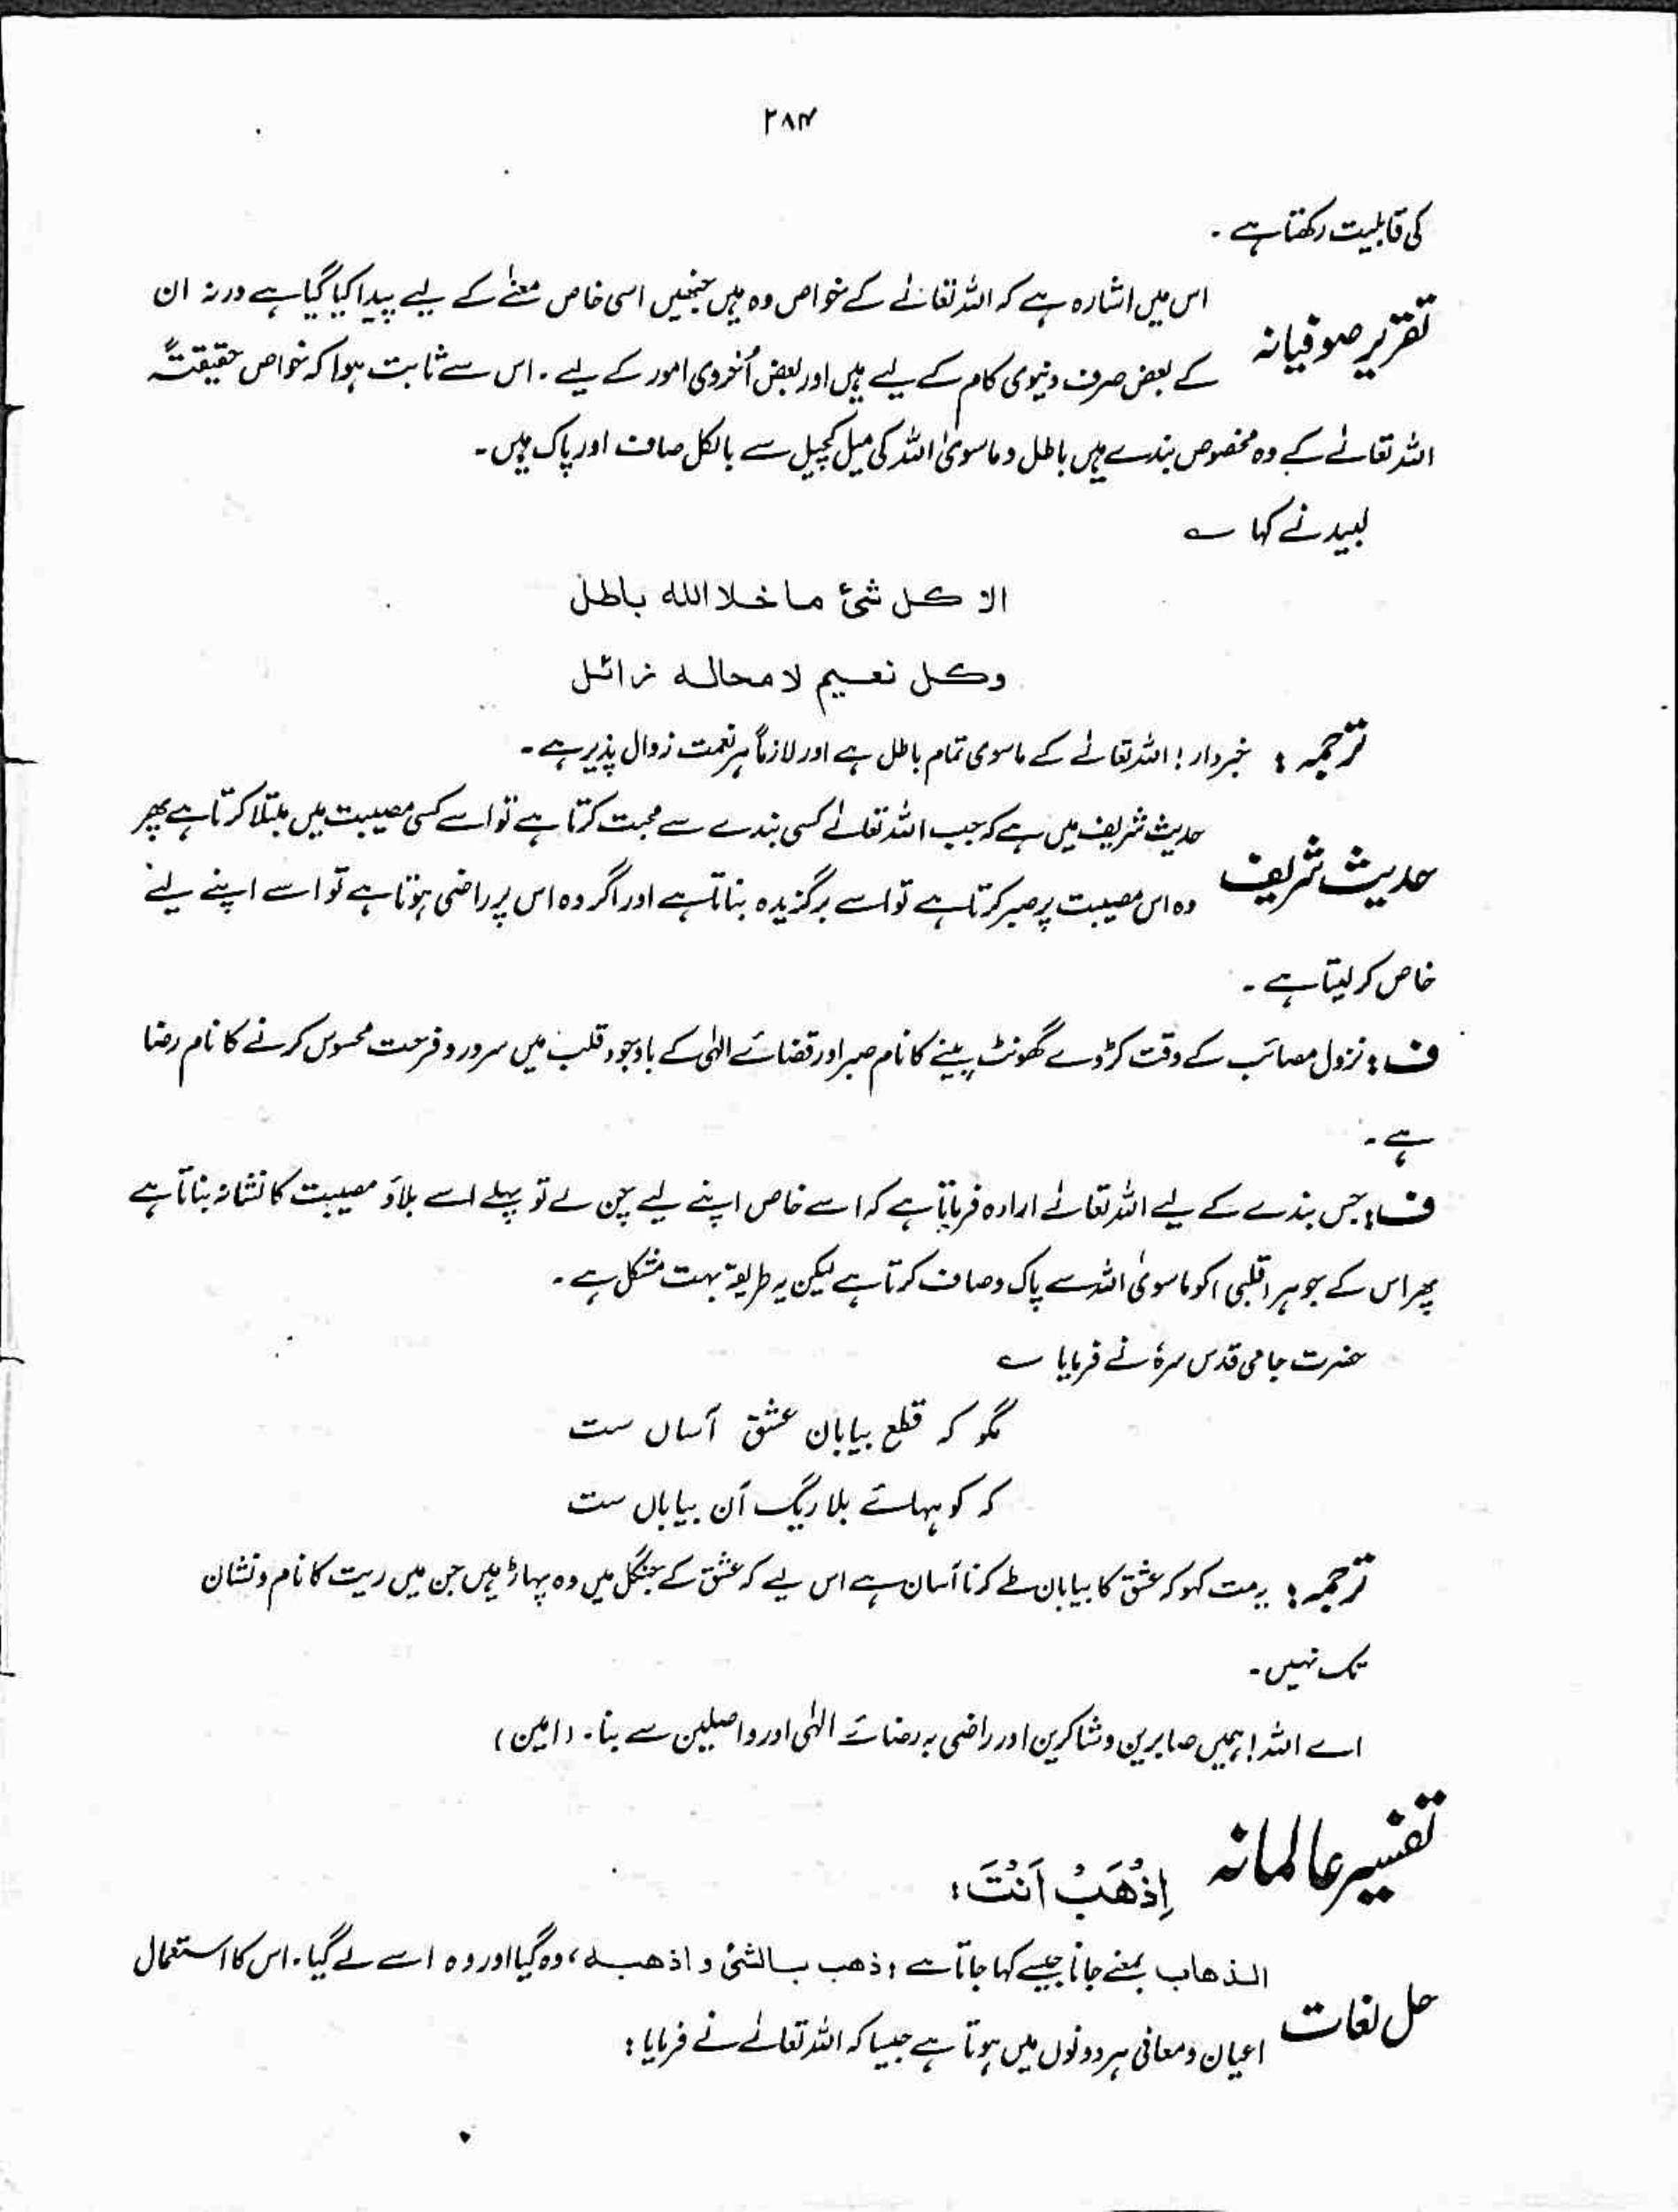 ۲۸۴
کی قابلیت رکھتا ہے ۔
تقریر صوفیانہ
اس میں اشارہ ہے کہ اللہ تعالےٰ کے خواص وہ ہیں جنھیں اسی خاص معنےٰ کے لیے پیدا کیا گیا ہے ورنہ ان
کے بعض صرف دنیوی کام کے لیے ہیں اور بعض اُخروی امور کے لیے ۔ اس سے ثابت ہوا کہ خواص حقیقتہً
اللہ تعالےٰ کے وہ مخصوص بندے ہیں باطل و ماسویٰ اللہ کی میل کچیل سے بالکل صاف اور پاک ہیں ۔
لبید نے کہا ؎
الا کل شیٔ ما خلا اللہ باطل
وکل نعیم لا محالہ زائل
ترجمہ : خبردار ! اللہ تعالےٰ کے ماسوی تمام باطل ہے اور لازماً ہر نعمت زوال پذیر ہے ۔
حدیث شریف
حدیث شریف میں ہے کہ جب اللہ تعالےٰ کسی بندے سے محبت کرتا ہے تو اسے کسی مصیبت میں مبتلا کرتا ہے پھر
وہ اس مصیبت پر صبر کرتا ہے تو اسے برگزیدہ بناتا ہے اور اگر وہ اس پر راضی ہوتا ہے تو اسے اپنے لیے
خاص کر لیتا ہے ۔
ف : نزول مصائب کے وقت کڑوے گھونٹ پینے کا نام صبر اور قضائے الہٰی کے باوجود قلب میں سرور و فرحت محسوس کرنے کا نام رضا
ہے ۔
ف : جس بندے کے لیے اللہ تعالےٰ ارادہ فرماتا ہے کہ اسے خاص اپنے لیے چن لے تو پہلے اسے بلاؤ مصیبت کا نشانہ بناتا ہے
پھر اس کے جوہر (قلبی) کو ماسویٰ اللہ سے پاک و صاف کرتا ہے لیکن یہ طریقہ بہت مشکل ہے ۔
حضرت جامی قدس سرہٗ نے فرمایا ؎
مگو کہ قطع بیابان عشق آساں ست
کہ کوہہائے بلا ریگ آن بیاباں ست
ترجمہ : یہ مت کہو کہ عشق کا بیابان طے کرنا آسان ہے اس لیے کہ عشق کے جنگل میں وہ پہاڑ ہیں جن میں ریت کا نام و نشان
تک نہیں ۔
اے اللہ ! ہمیں صابرین و شاکرین اور راضی بہ رضائے الہٰی اور واصلین سے بنا ۔ (امین)
تفسیر عالمانہ
اِذْهَبْ اَنْتَ :
حل لغات
الذھاب بمعنے جانا جیسے کہا جاتا ہے : ذھب بالشئ و اذھبہ ، وہ گیا اور وہ اسے لے گیا ۔ اس کا استعمال
اعیان و معانی ہر دونوں میں ہوتا ہے جیسا کہ اللہ تعالےٰ نے فرمایا :